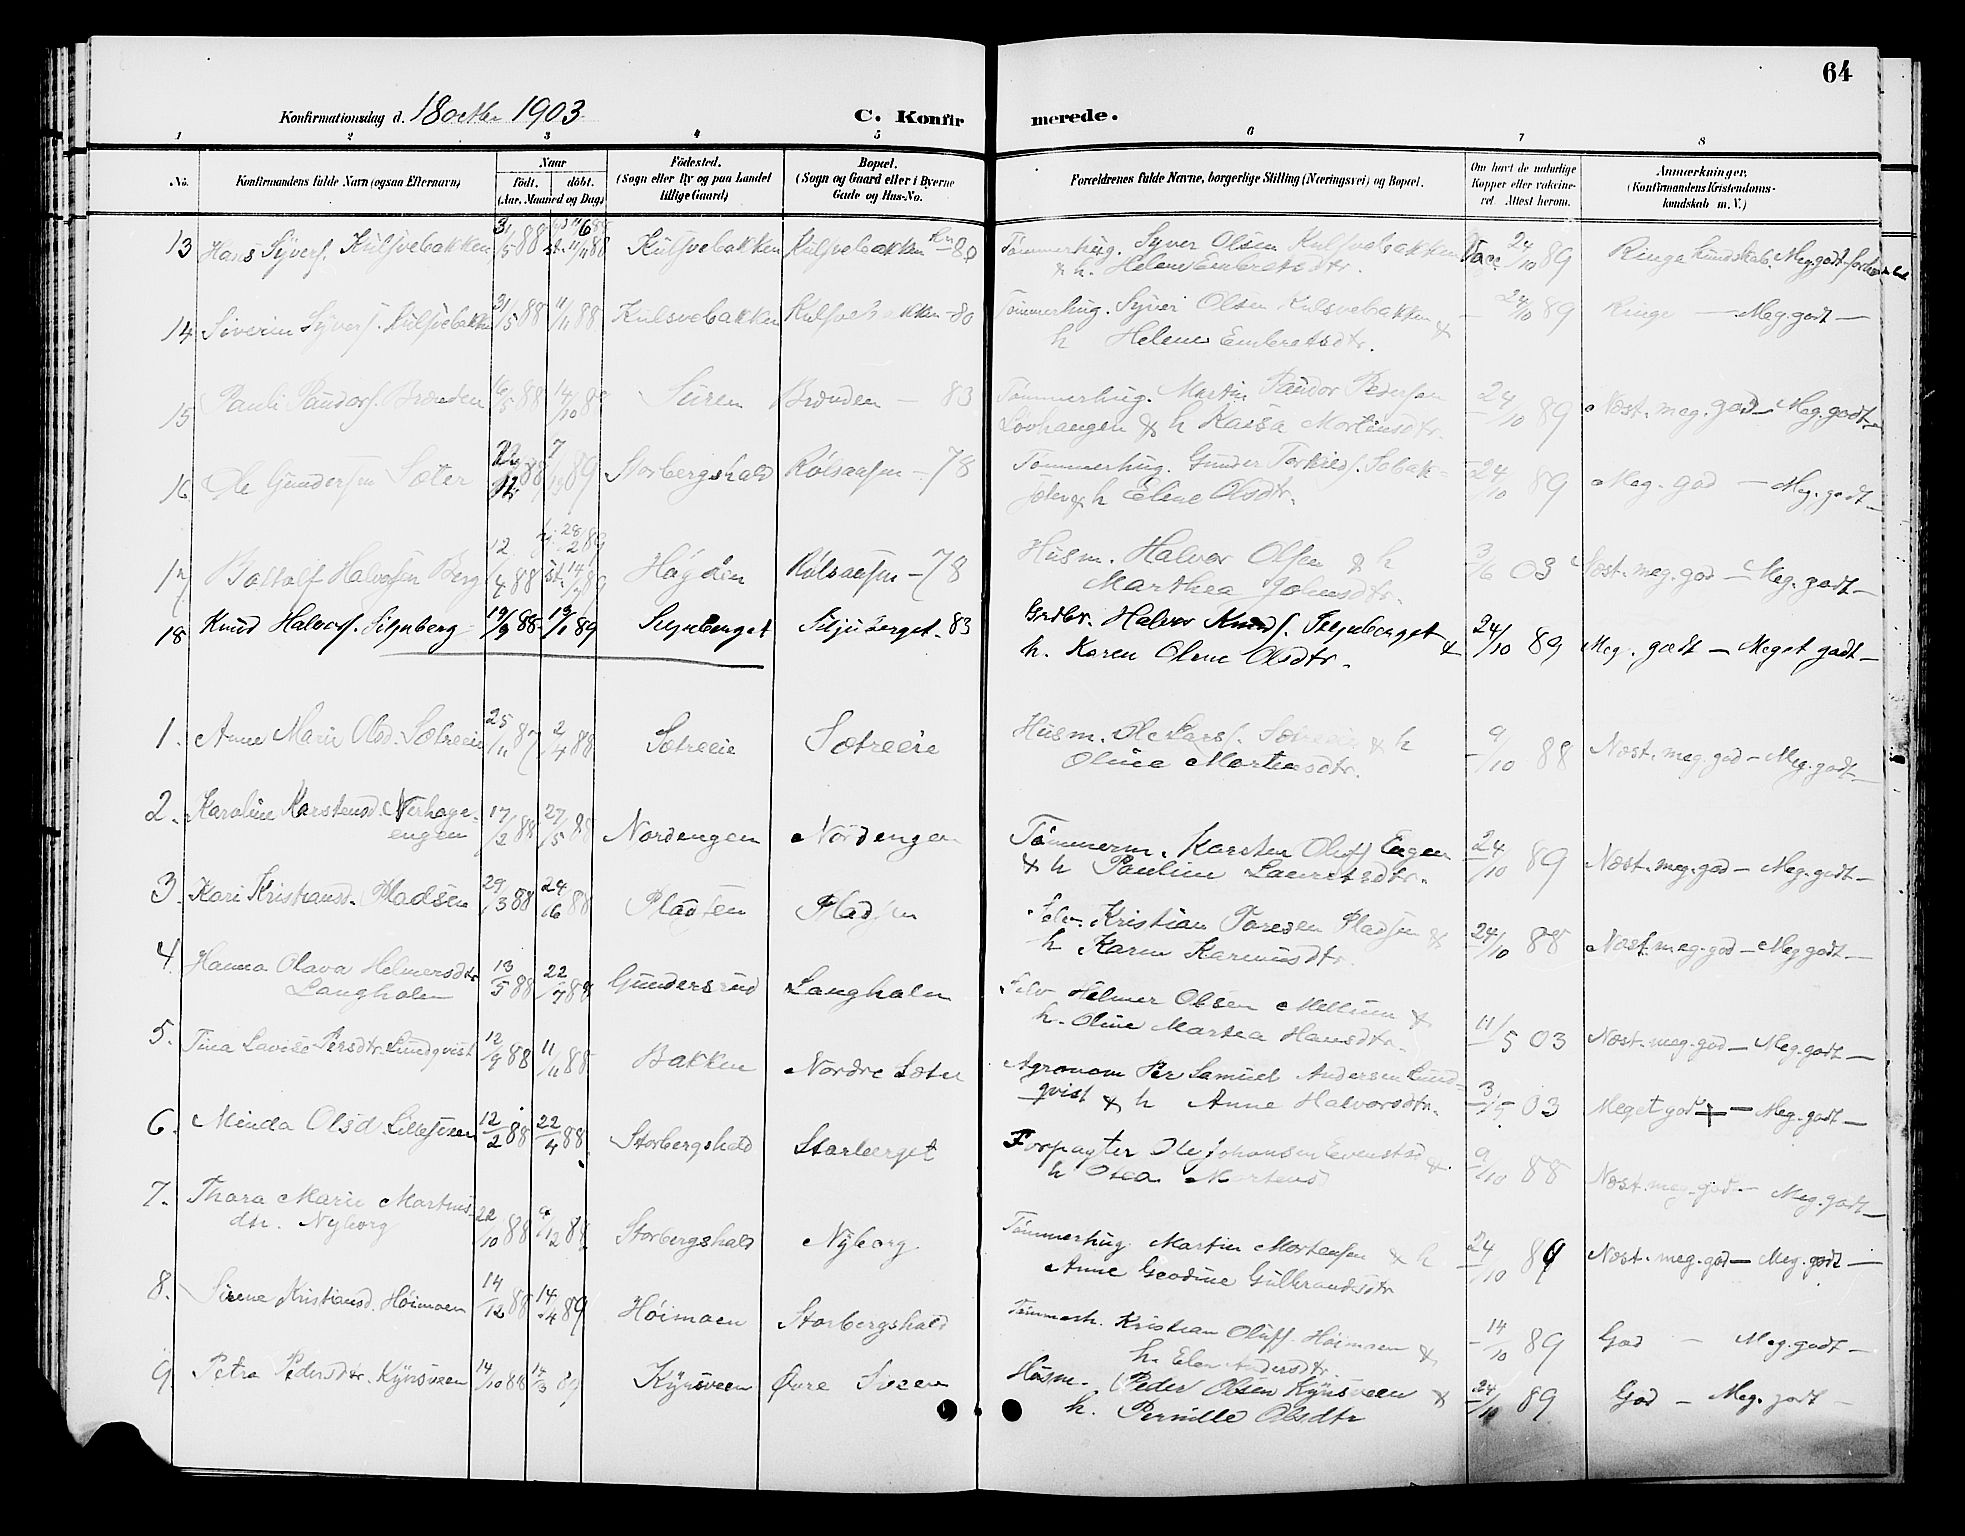 64
Konfirmationsdag d. 18 octbr 1903.
C. Konfirmerede.
1 2 3 4 5 6 7 8
No.
Konfirmandens fulde Navn (ogsaa Efternavn)
Naar
födt. döbt.
(Aar, Maaned og Dag)
Födested.
(Sogn eller By og paa Landet
tillige Gaard)
Bopæl.
(Sogn og Gaard eller i Byerne
Gade og Hus-No.
Forældrenes fulde Navne, borgerlige Stilling (Næringsvei) og Bopæl.
Om havt de naturlige
Kopper eller vaccine-
ret. Attest herom.
Anmærkninger.
(Konfirmandens Kristendoms-
kundskab m. V.)
13 Hans Syvers. Kulsvebakken 31/5 88 11/11 88 Kulsvebakken Kulsvebakken 80 Tømmerhug. Syver Olsen Kulsvebakken Vacc. 24/10 89 Ringe Kundskab. Meg. godt
& h. Helene Embretsdtr.
14 Siverin Syvers. Kulsvebakken 31/5 88 11/11 88 Kulsvebakken Kulsvebakken - 80 Tømmerhug. Syver Olsen Kulsvebakken & 24/10 89 Ringe — Meg. godt —
h Helene Embretsdtr.
15 Pauli Sandors. Brænden 16/5 88 14/10 88 Suren Brænden - 83 Tømmerhug. Martin Sandor Pedersen 24/10 89 Næst. meg. god — Meg. godt —
Løvhaugen & h Kaisa Mortensdtr.
16 Ole Gundersen Sæter 88 89 Storbergshald Rölsaasen - 78 Tømmerhug. Gunder Torkilds. 24/10 89 Meg. god — Meg. godt —
& h Eline Olsdtr.
17 Halvorsen Berg 12/4 88 28/2 89 Rölsaasen - 78 Husm. Halvor Olsen & h 3/6 03 Næst. meg. god — Meg. godt —
Marthea Johnsdtr.
18 Knud Halvors. Siljuberg 19/9 88 13/1 89 Siljuberget Siljuberget - 83 Grdbr. Halvor Knuds. Siljuberget & 24/10 89 Meg. godt — Meget godt —
h. Karen Oline Olsdtr.
1. Anne Marie Olsd. Sætreeie 25/11 87 2/4 88 Sætreeie Sætreeie Husm. Ole Lars. Sætreeie & h 9/10 88 Næst. meg. god — Meg. godt —
Oline Mortensdtr.
2. Karoline Karstensd. Nerhage-
engen 17/2 88 27/5 88 Nordengen Nordengen Tømmerm. Karsten Olufs Engen 24/10 89 Næst. meg. god — Meg. godt —
& h Pauline Lauritsdtr.
3. Kari Kristiansd. Pladsen 29/3 88 24/6 88 Pladsen Pladsen Selv. Kristian Toresen Pladsen & 24/10 88 Næst. meg. god — Meg godt —
h Karen Karinusdtr.
4. Hanna Olava Helmersdtr
Langholen 13/5 88 22/7 88 Gundersrud Langholen Selv Helmer Olsen Mellum & 11/5 03 Næst. meg. god — Meg. godt —
h. Oline Martea Hansdtr.
5. Tina Lovise Persdtr. Lundqvist 12/9 88 11/11 88 Bakken Nordre Sæter Agronom Per Samuel Andersen Lund-
qvist & h Anne Halvorsdtr. 03 Meget god — Meg. godt —
6. Minda Olsd Lillesven 12/2 88 22/4 88 Storbergshald Storberget Forpagter Ole Johansen Evenstad & 9/10 88 Næst. meg. god — Meg. godt —
h Olea Mortensd
7. Thora Marie Martins-
dtr. Nyborg 22/10 88 9/12 88 Storbergshald Nyborg Tømmerhug Martin Mortensen & h 24/10 89 Næst. meg. god — Meg. godt —
Anne Geodine Gulbrandsdtr
8. Sirene Kristiansd. Höimoen 14/12 88 14/4 89 Höimoen Storbergshald Tømmerh. Kristian Olufs. Höimoen & 14/10 89 God — Meg. godt —
h. Elen Andersdtr
9. Petra Pedersdtr. Kynsveen 14/10 88 89 Kynsveen Øvre Sveen Husm. Peder Olsen Kynsveen & 24/10 89 God — Meg. godt —
h. Pernille Olsdtr